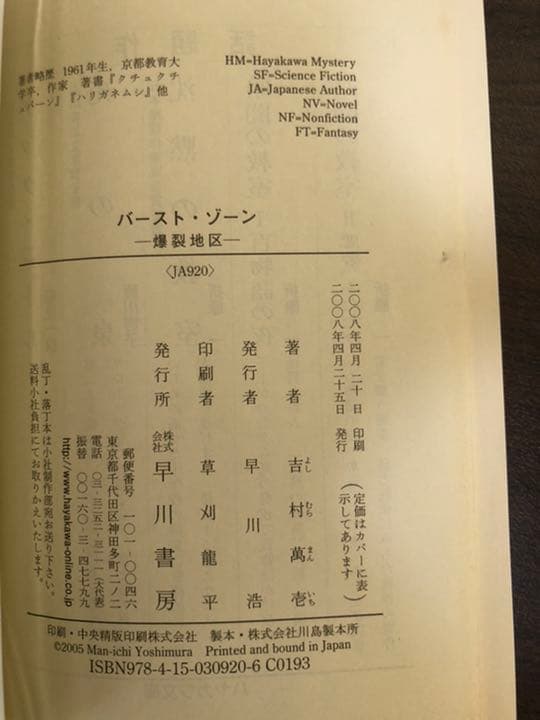 著者略歴 1961年生,京都教育大
学卒,作家 著書『クチュクチ
ュバーン』『ハリガネムシ』他
HM=Hayakawa Mystery
SF=Science Fiction
JA=Japanese Author
NV=Novel
NF=Nonfiction
FT=Fantasy
バースト・ゾーン
―爆裂地区―
〈JA920〉
二〇〇八年四月二十日 印刷
二〇〇八年四月二十五日 発行
(定価はカバーに表
示してあります)
著者 吉村萬壱
よし むら まん いち
発行者 早川浩
印刷者 草刈龍平
発行所 株式会社 早川書房
郵便番号 一〇一-〇〇四六
東京都千代田区神田多町二ノ二
電話 〇三-三二五二-三一一一(大代表)
振替 〇〇一六〇-三-四七七九九
http://www.hayakawa-online.co.jp
乱丁・落丁本は小社制作部宛お送り下さい。
送料小社負担にてお取りかえいたします。
印刷・中央精版印刷株式会社 製本・株式会社川島製本所
©2005 Man-ichi Yoshimura Printed and bound in Japan
ISBN978-4-15-030920-6 C0193